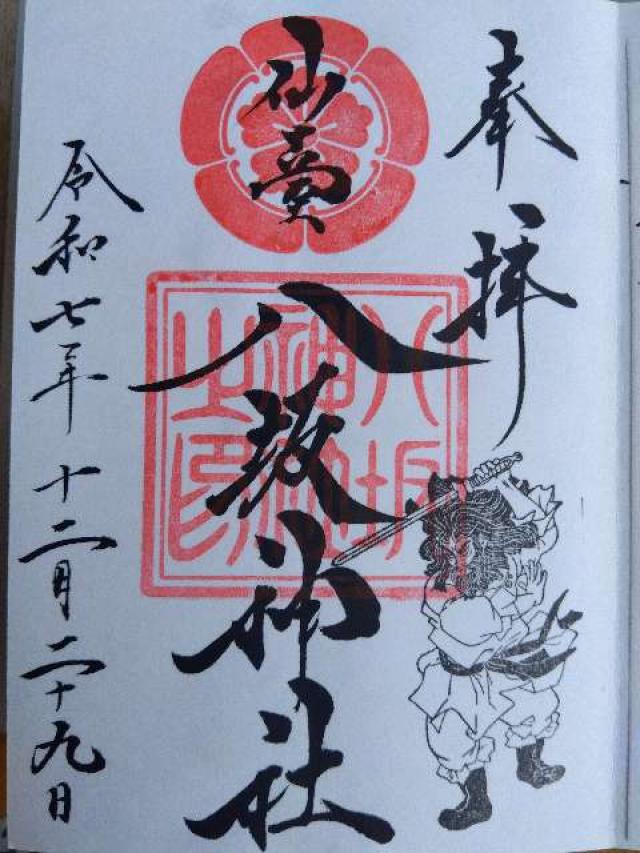 奉拝
仙賣
八坂神社
令和七年十二月二十九日
八坂
神社
之印